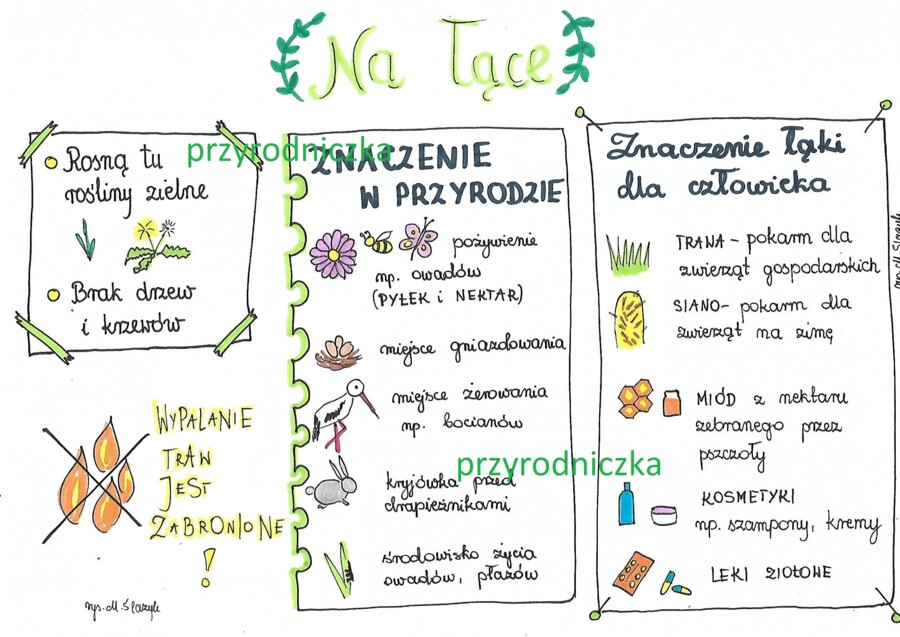 Na łące
Rosną tu
rośliny zielne
Brak drzew
i krzewów
WYPALANIE
TRAW
JEST
ZABRONIONE
!
rys. M. Ślązyk
przyrodniczka
ZNACZENIE
W PRZYRODZIE
pożywienie
np. owadów
(PYŁEK i NEKTAR)
miejsce gniazdowania
miejsce żerowania
np. bocianów
kryjówka przed
drapieżnikami
środowisko życia
owadów, płazów
przyrodniczka
Znaczenie łąki
dla człowieka
TRAWA – pokarm dla
zwierząt gospodarskich
SIANO – pokarm dla
zwierząt na zimę
MIÓD z nektaru
zebranego przez
pszczoły
KOSMETYKI
np. szampony, kremy
LEKI ZIOŁOWE